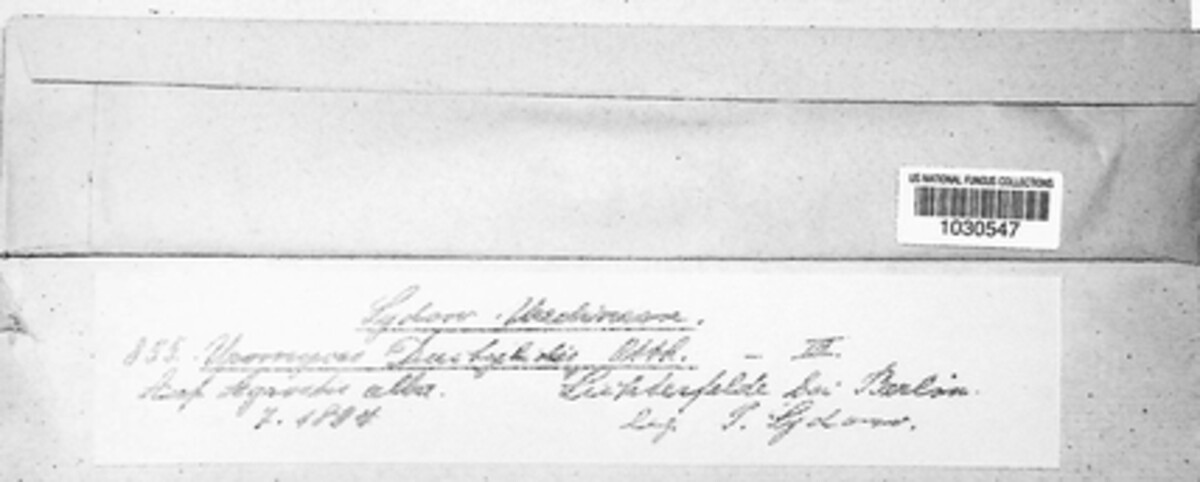 US NATIONAL FUNGUS COLLECTIONS
1030547
Sydow. Uredineen.
855. Uromyces Dactylidis Otth. – III.
Auf Agrostis alba. Lichterfelde bei Berlin.
7. 1894 leg. P. Sydow.